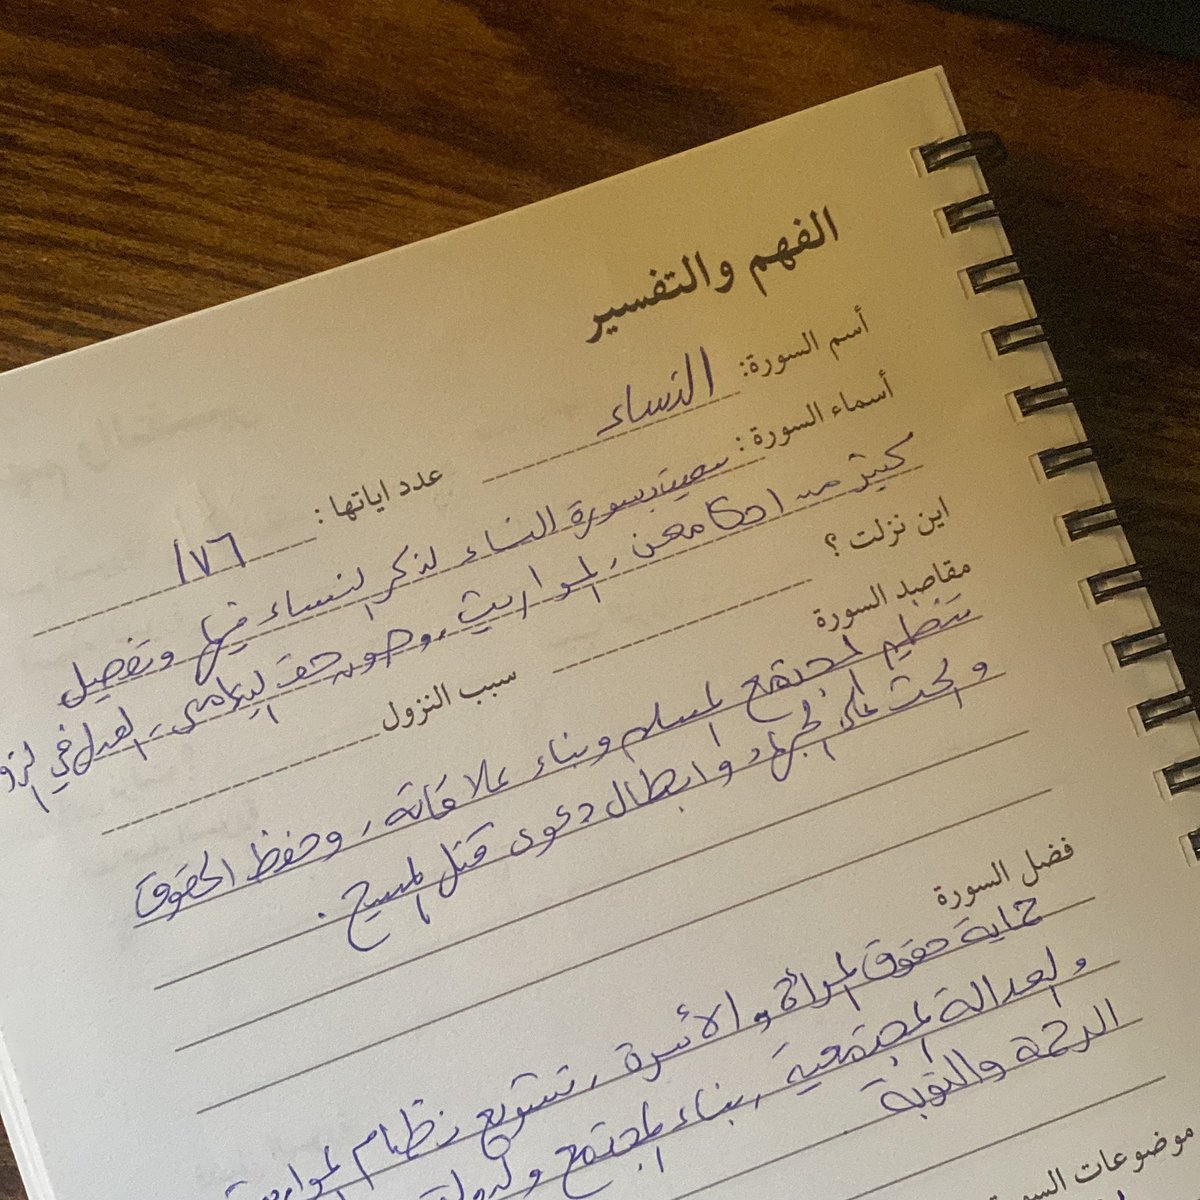 الفهم والتفسير
أسم السورة: النساء
عدد اياتها : ١٧٦
أسماء السورة : سميت بسورة النساء لذكر النساء فيها وتفصيل
كثير من احكامهن , المواريث , وصون حق اليتامى , العدل في
اين نزلت ؟
سبب النزول
مقاصد السورة
تنظيم المجتمع المسلم وبناء علاقاته , وحفظ الحقوق
والحث على الجهاد وابطال دعوى قتل المسيح .
فضل السورة
حماية حقوق المرأة والأسرة , تشريع نظام
والعدالة المجتمعية , بناء المجتمع
الرحمة والتوبة .
موضوعات